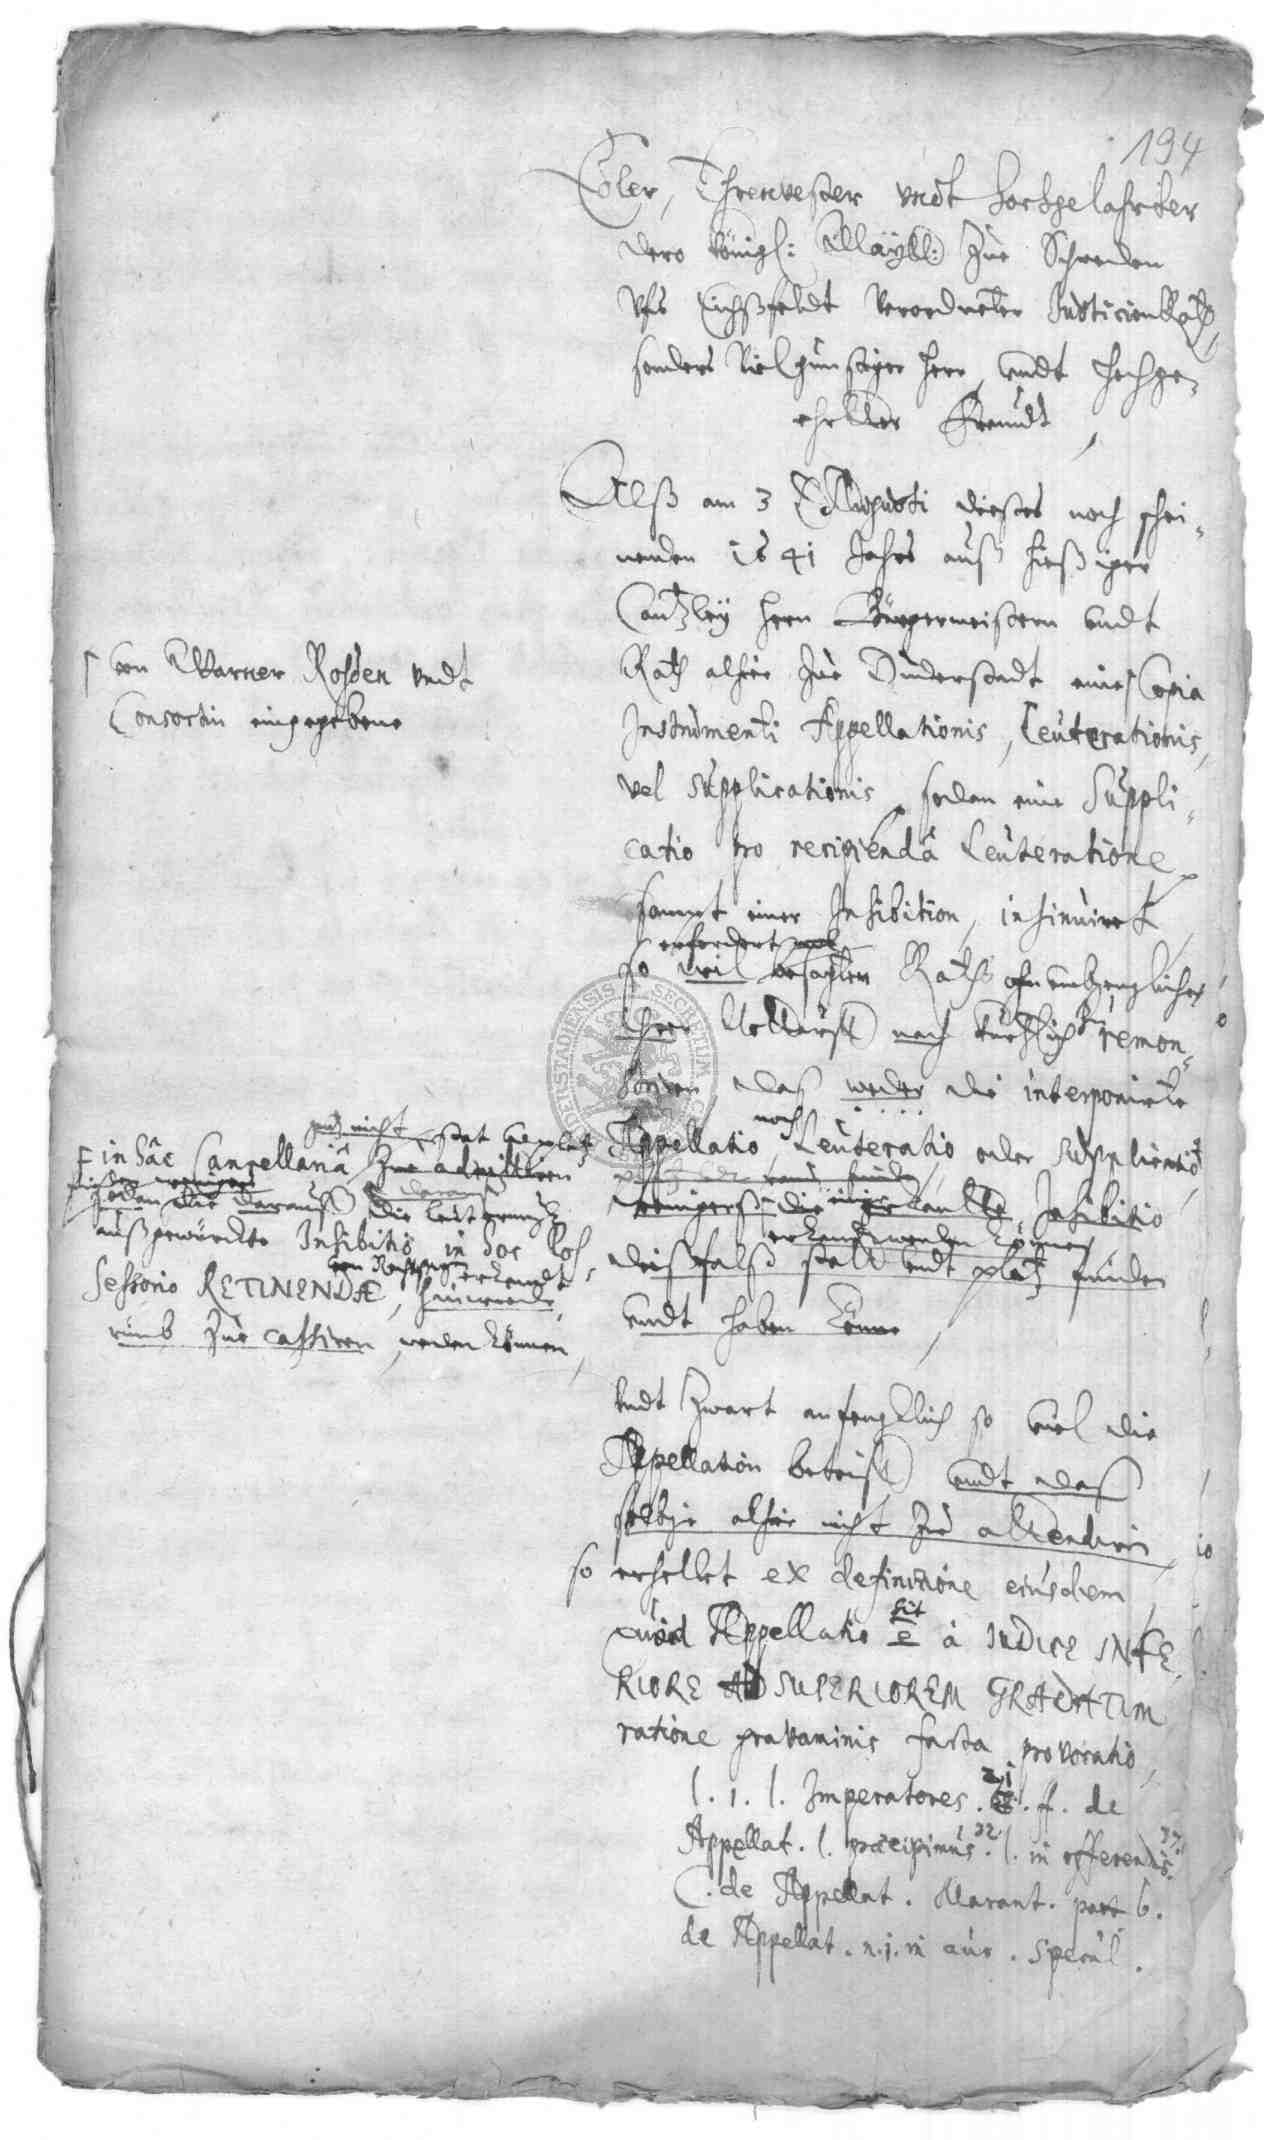 194
Edler, Ehrenvester vndt hochgelahrter
dero Königl: Maÿtt: Zue Schweden
vfs Eichßfeldt Verordneter Justicien Rath,
sonders Vielgünstiger Herr, vndt Hochge-
ehrtter Freundt,
Alß am 3 Augusti dießes noch schei-
nenden 1641 Jahrs auß hießiger
Cantzleÿ Hern Bürgermeistern vndt
Rath alhie Zue Duderstadt eine Copia
Instrumenti Appellationis, Leuterationis,
vel Supplicationis, sodan eine Suppli-
catio pro recipiendâ Leuteratione
sampt einer Inhibition, insinuiret
erfordert
so wil besagten Raths ohnumbgengliche
ihre Notturfft nach kürtzlich remon-
striren das weder die interponirte
noch
Appellatio, Leuteratio oder Supplicatio
weinigers die Inhibitio
erkandt werden können
dißfalß statt vndt platz finden
vndt haben könne,
von Warner Rohden vndt
Consortin eingegebene
in hâc Cancellariâ Zue admittiren
sodan die darauß
außgewürckte Inhibitio in hoc Pos-
sessorio RETINENDÆ, erkandt
rumb Zue cassiren, werden können,
vndt Zwart anfenglich so viel die
Appellation betrifft vndt das
selbige alhie nicht Zu attendiren 10
so erhellet ex definitione eiusdem
quòd Appellatio sit à IUDICE INFE-
RIORE AD SUPERIOREM GRADATIM
ratione gravaminis facta provocatio,
l. 1. l. Imperatores. 21. ff. de
Appellat. l. præcipimus. 32. l. in offerendis. 37.
C. de Appellat. Marant. part 6.
de Appellat. n. 1. in aur. Specul.